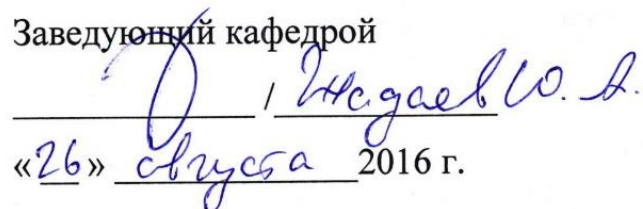 Заведующий кафедрой
/ Жадаев Ю. А.
«26» августа 2016 г.